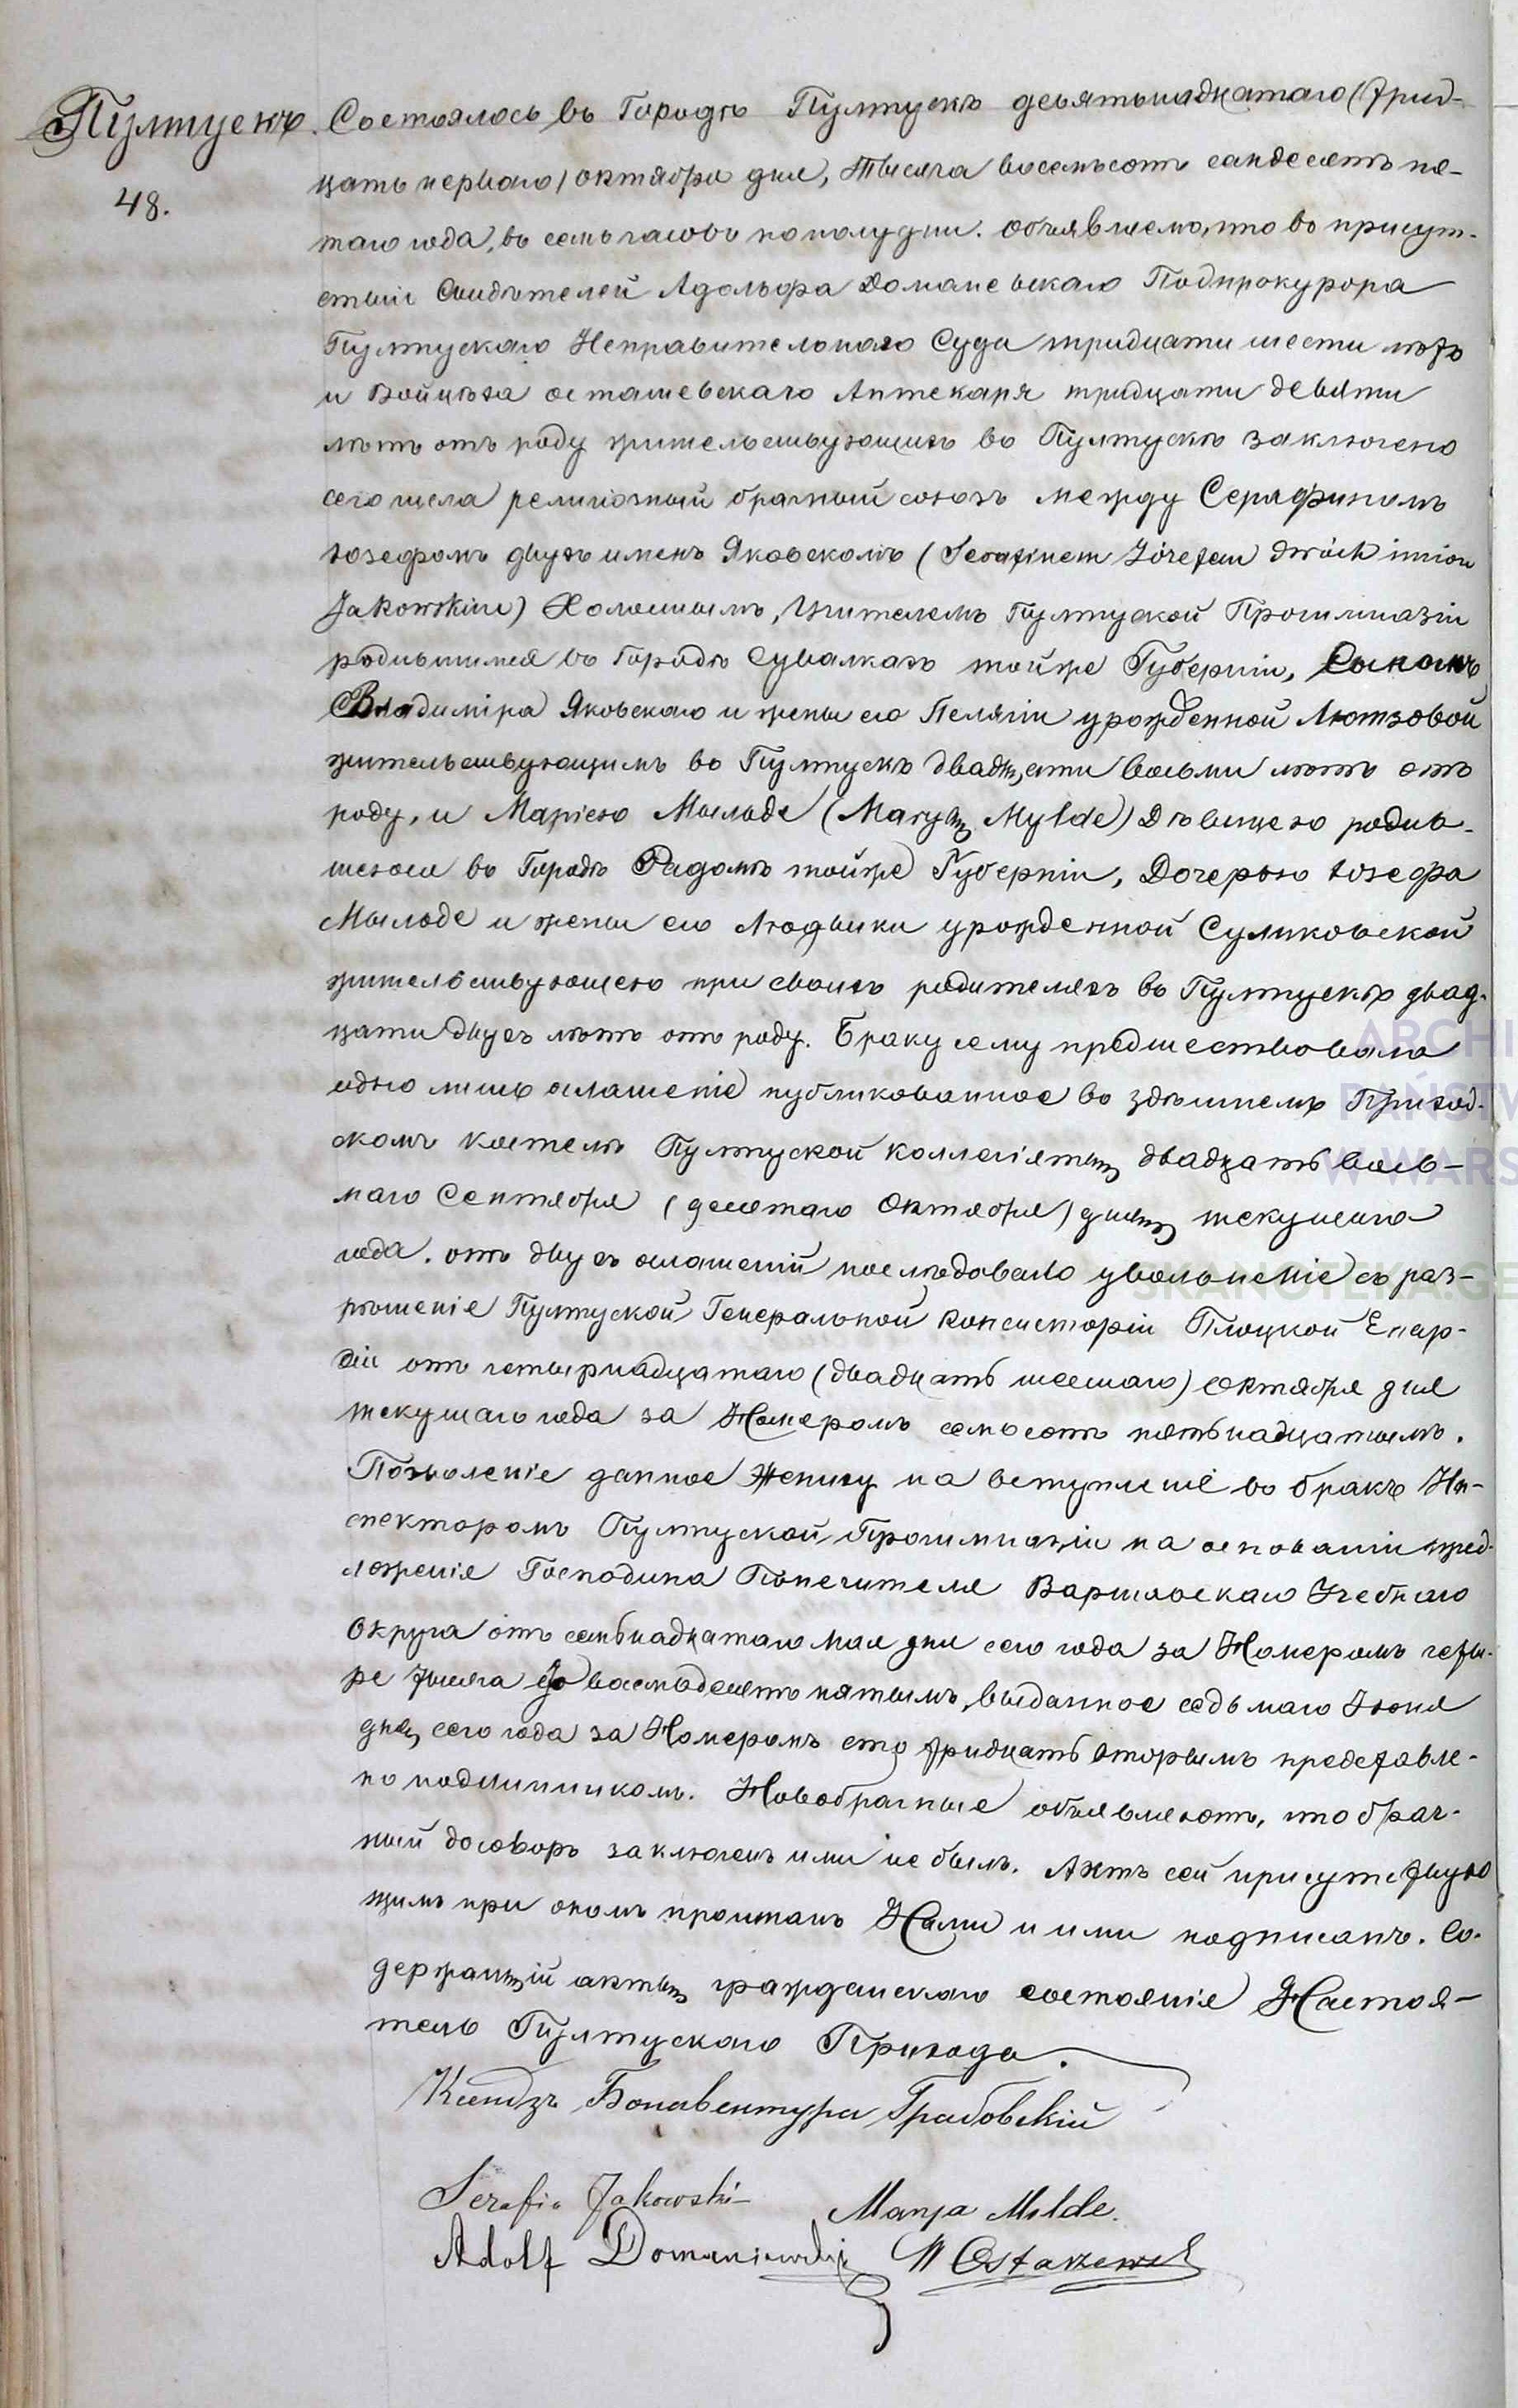 Пултускъ. Состоялось въ Городѣ Пултускѣ девятьнадцатаго (трид-
48.
цать перваго) октября дня, тысяча восемьсотъ семдесятъ пя-
таго года, въ семь часовъ пополудни. Объявляемъ, что въ присут-
ствіи свидѣтелей Адольфа Доманевскаго Подпрокурора
Пултускаго Исправительнаго Суда тридцати шести лѣтъ
и Войцѣха Осташевскаго Аптекаря тридцати девяти
лѣтъ отъ роду жительствующихъ въ Пултускѣ заключено
сего числа религіозный брачный союзъ между Серафиномъ
Іозефомъ двухъ именъ Яковскомъ (Serafinem Józefem dwóch imion
Jakowskim) Холостымъ, Учителемъ Пултуской Прогимназіи
родившимся въ Городѣ Сувалкахъ тойже Губерніи, Сыномъ
Владиміра Яковскаго и жены его Пелягіи урожденной Лютзовой
жительствующимъ въ Пултускѣ двадцати восьми лѣтъ отъ
роду, и Маріею Мыльде (Maryą Mylde) Дѣвицею родив-
шеюся въ Городѣ Радомѣ тойже Губерніи, Дочерью Іозефа
Мыльде и жены его Людвики урожденной Суликовской
жительствующею при своихъ родителяхъ въ Пултускѣ двад-
цати двухъ лѣтъ отъ роду. Браку сему предшествовало
одно лишь оглашеніе публикованное въ здѣшнемъ Приход-
скомъ костелѣ Пултуской коллегіяты двадцать вось-
маго Сентября (десятаго Октября) дня текущаго
года. отъ двухъ оглашеній послѣдовало увольненіе съ раз-
рѣшеніе Пултуской Генеральной Консисторіи Плоцкой Епар-
хіи отъ четырнадцатаго (двадцать шестаго) октября дня
текущаго года за Номеромъ семьсотъ пятьнадцатымъ.
Позволеніе данное Жениху на вступленіе въ бракъ Ин-
спекторомъ Пултуской Прогимназіи на основаніи пред-
ложенія Господина Попечителя Варшавскаго Учебнаго
Округа отъ семьнадцатаго мая дня сего года за Номеромъ четы-
ре тысяча восемьдесятъ пятымъ, выданное седьмаго Іюня
дня, сего года за Номеромъ сто тридцать вторымъ представле-
но подлинникомъ. Новобрачные объявляютъ, что брач-
ный договоръ заключенъ ими не былъ. Актъ сей присутствую
щимъ при ономъ прочитанъ Нами и ими подписанъ. Со-
держащій акты гражданскаго состоянія Настоя-
тель Пултускаго Прихода.
Ксендзъ Бонавентура Грабовскій
Serafin Jakowski Marya Milde.
Adolf Domaniewski W Ostaszewski
ARCHI
PAŃSTW
W WARS
SKANOTEKA.GE